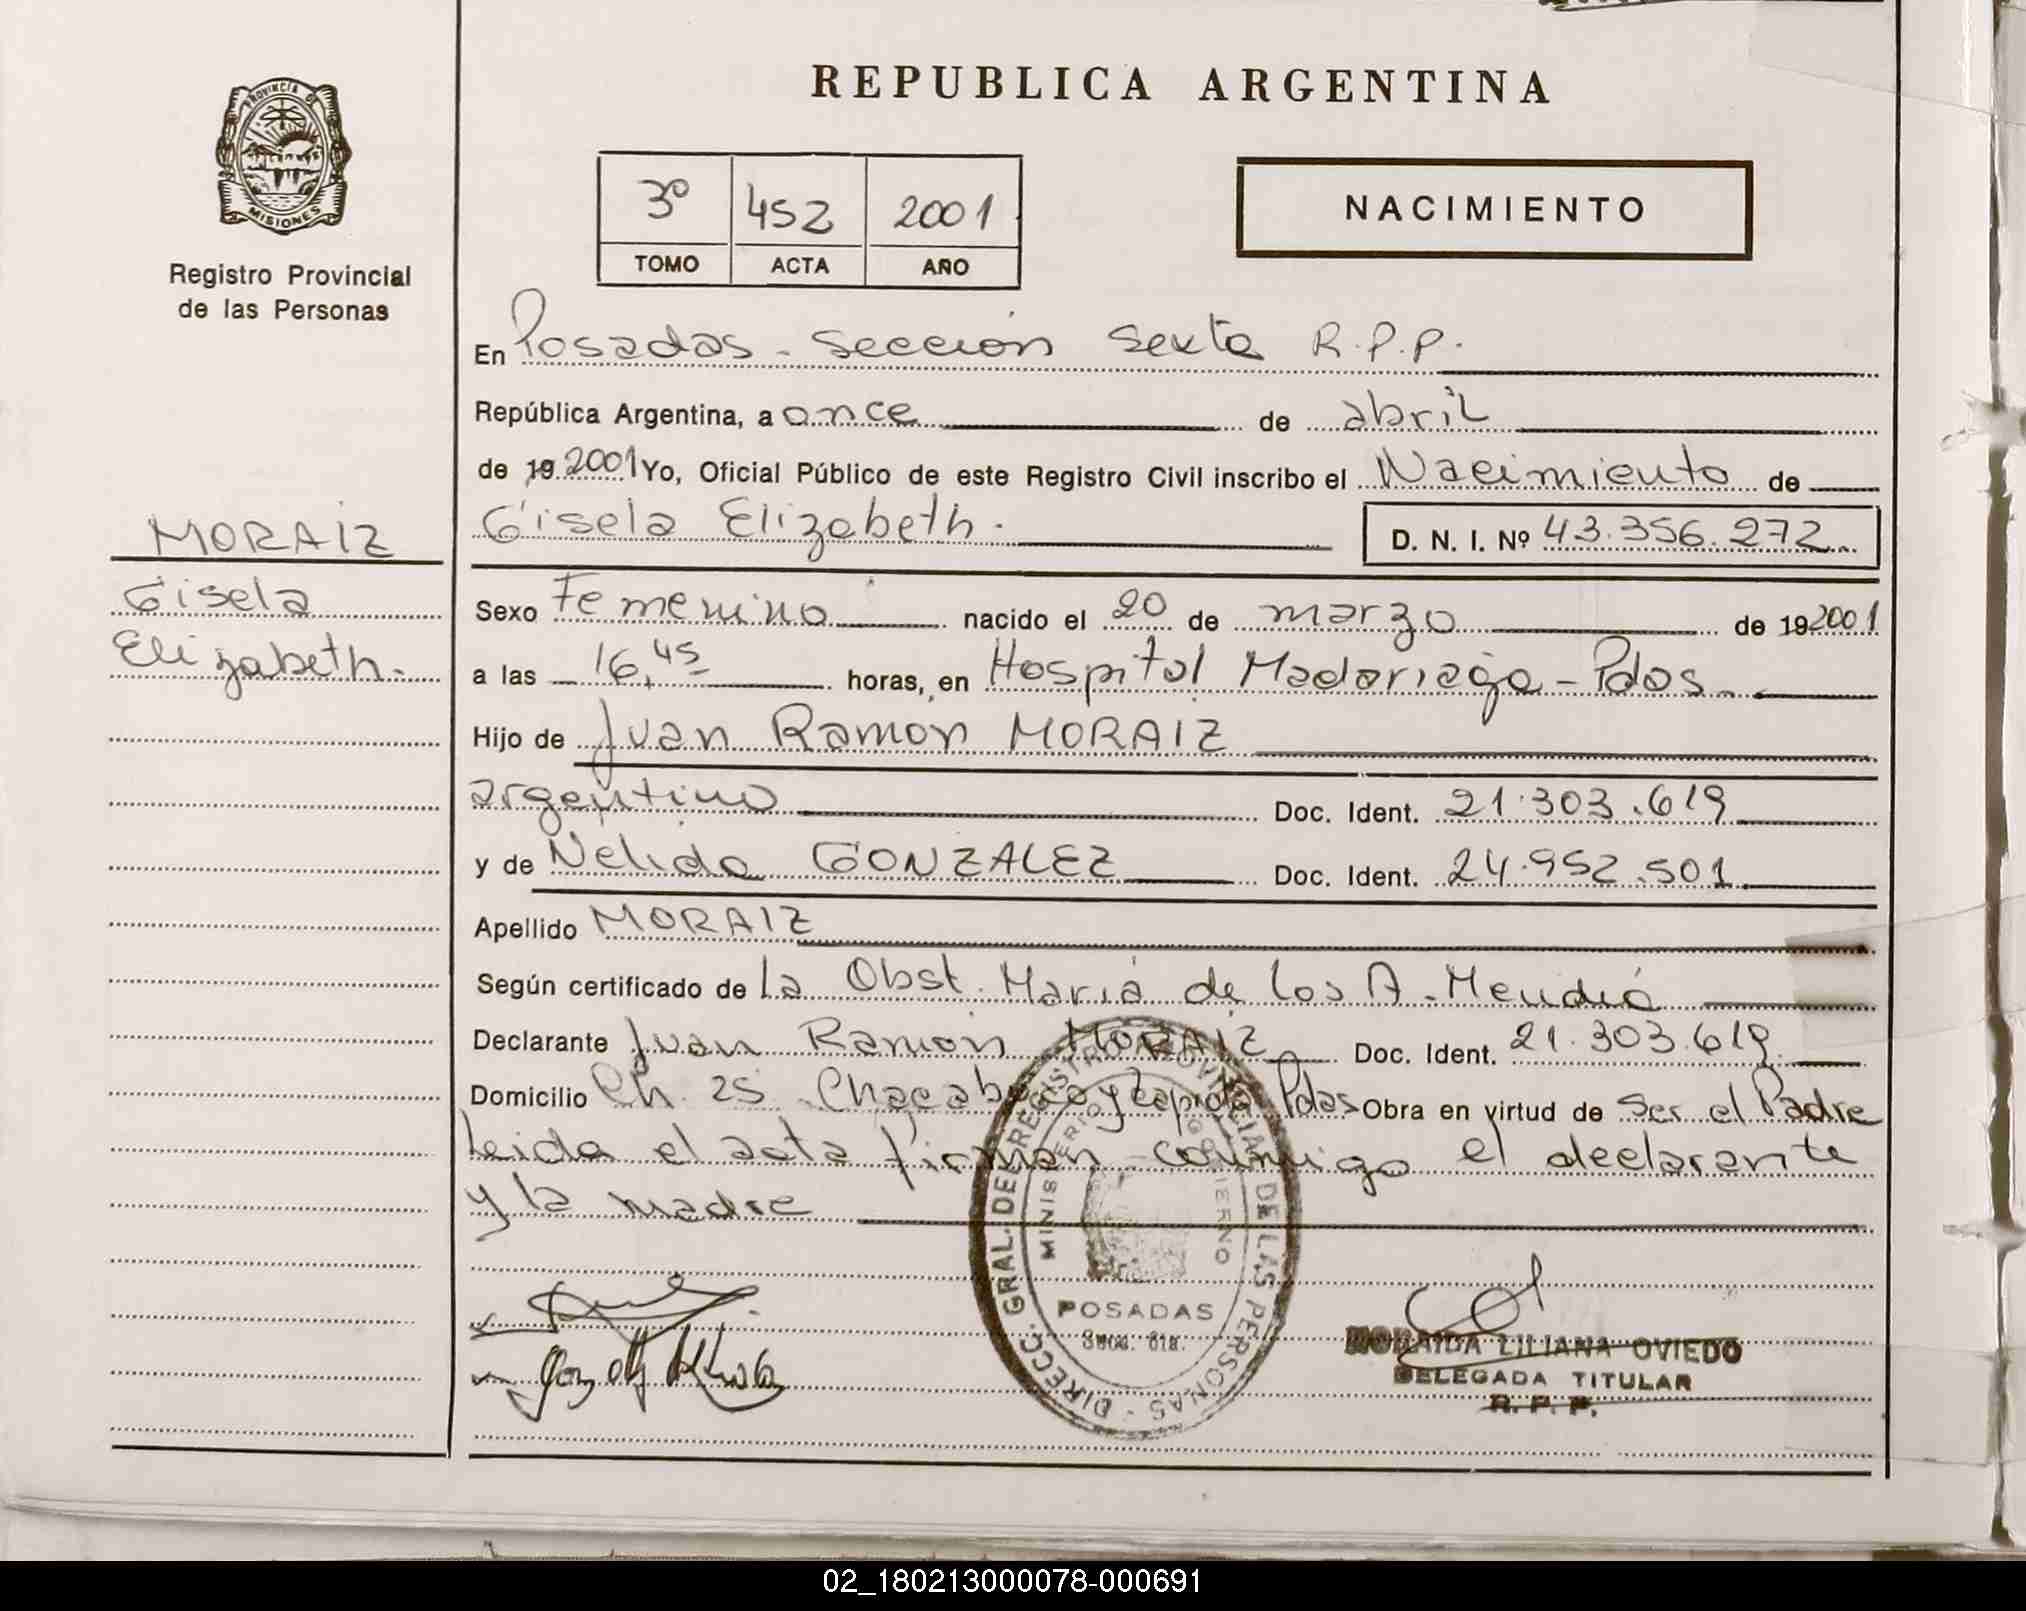 REPUBLICA ARGENTINA
PROVINCIA DE
MISIONES
Registro Provincial
de las Personas
3º 452 2001
TOMO ACTA AÑO
NACIMIENTO
En Posadas - Sección Sexta R.P.P.
República Argentina, a once de abril
de 19 2001 Yo, Oficial Público de este Registro Civil inscribo el Nacimiento de
Gisela Elizabeth.
D. N. I. Nº 43.356.272
MORAIZ
Gisela
Elizabeth.
Sexo Femenino nacido el 20 de marzo de 19 2001
a las 16,45 horas, en Hospital Madariaga - Pdas
Hijo de Juan Ramon MORAIZ
argentino Doc. Ident. 21.303.619
y de Nelida GONZALEZ Doc. Ident. 24.952.501
Apellido MORAIZ
Según certificado de la Obst. Maria de los A. Mendié
Declarante Juan Ramón MORAIZ Doc. Ident. 21.303.619
Domicilio Ch. 25 Chacabuco y Laprida Pdas Obra en virtud de Ser el Padre
Leida el acta firman conmigo el declarante
y la madre
DIRECC. GRAL. DEL REGISTRO PROVINCIAL DE LAS PERSONAS
MINISTERIO GOBIERNO
POSADAS
Secc. 6ta.
LILIANA OVIEDO
DELEGADA TITULAR
R. P. P.
02_180213000078-000691